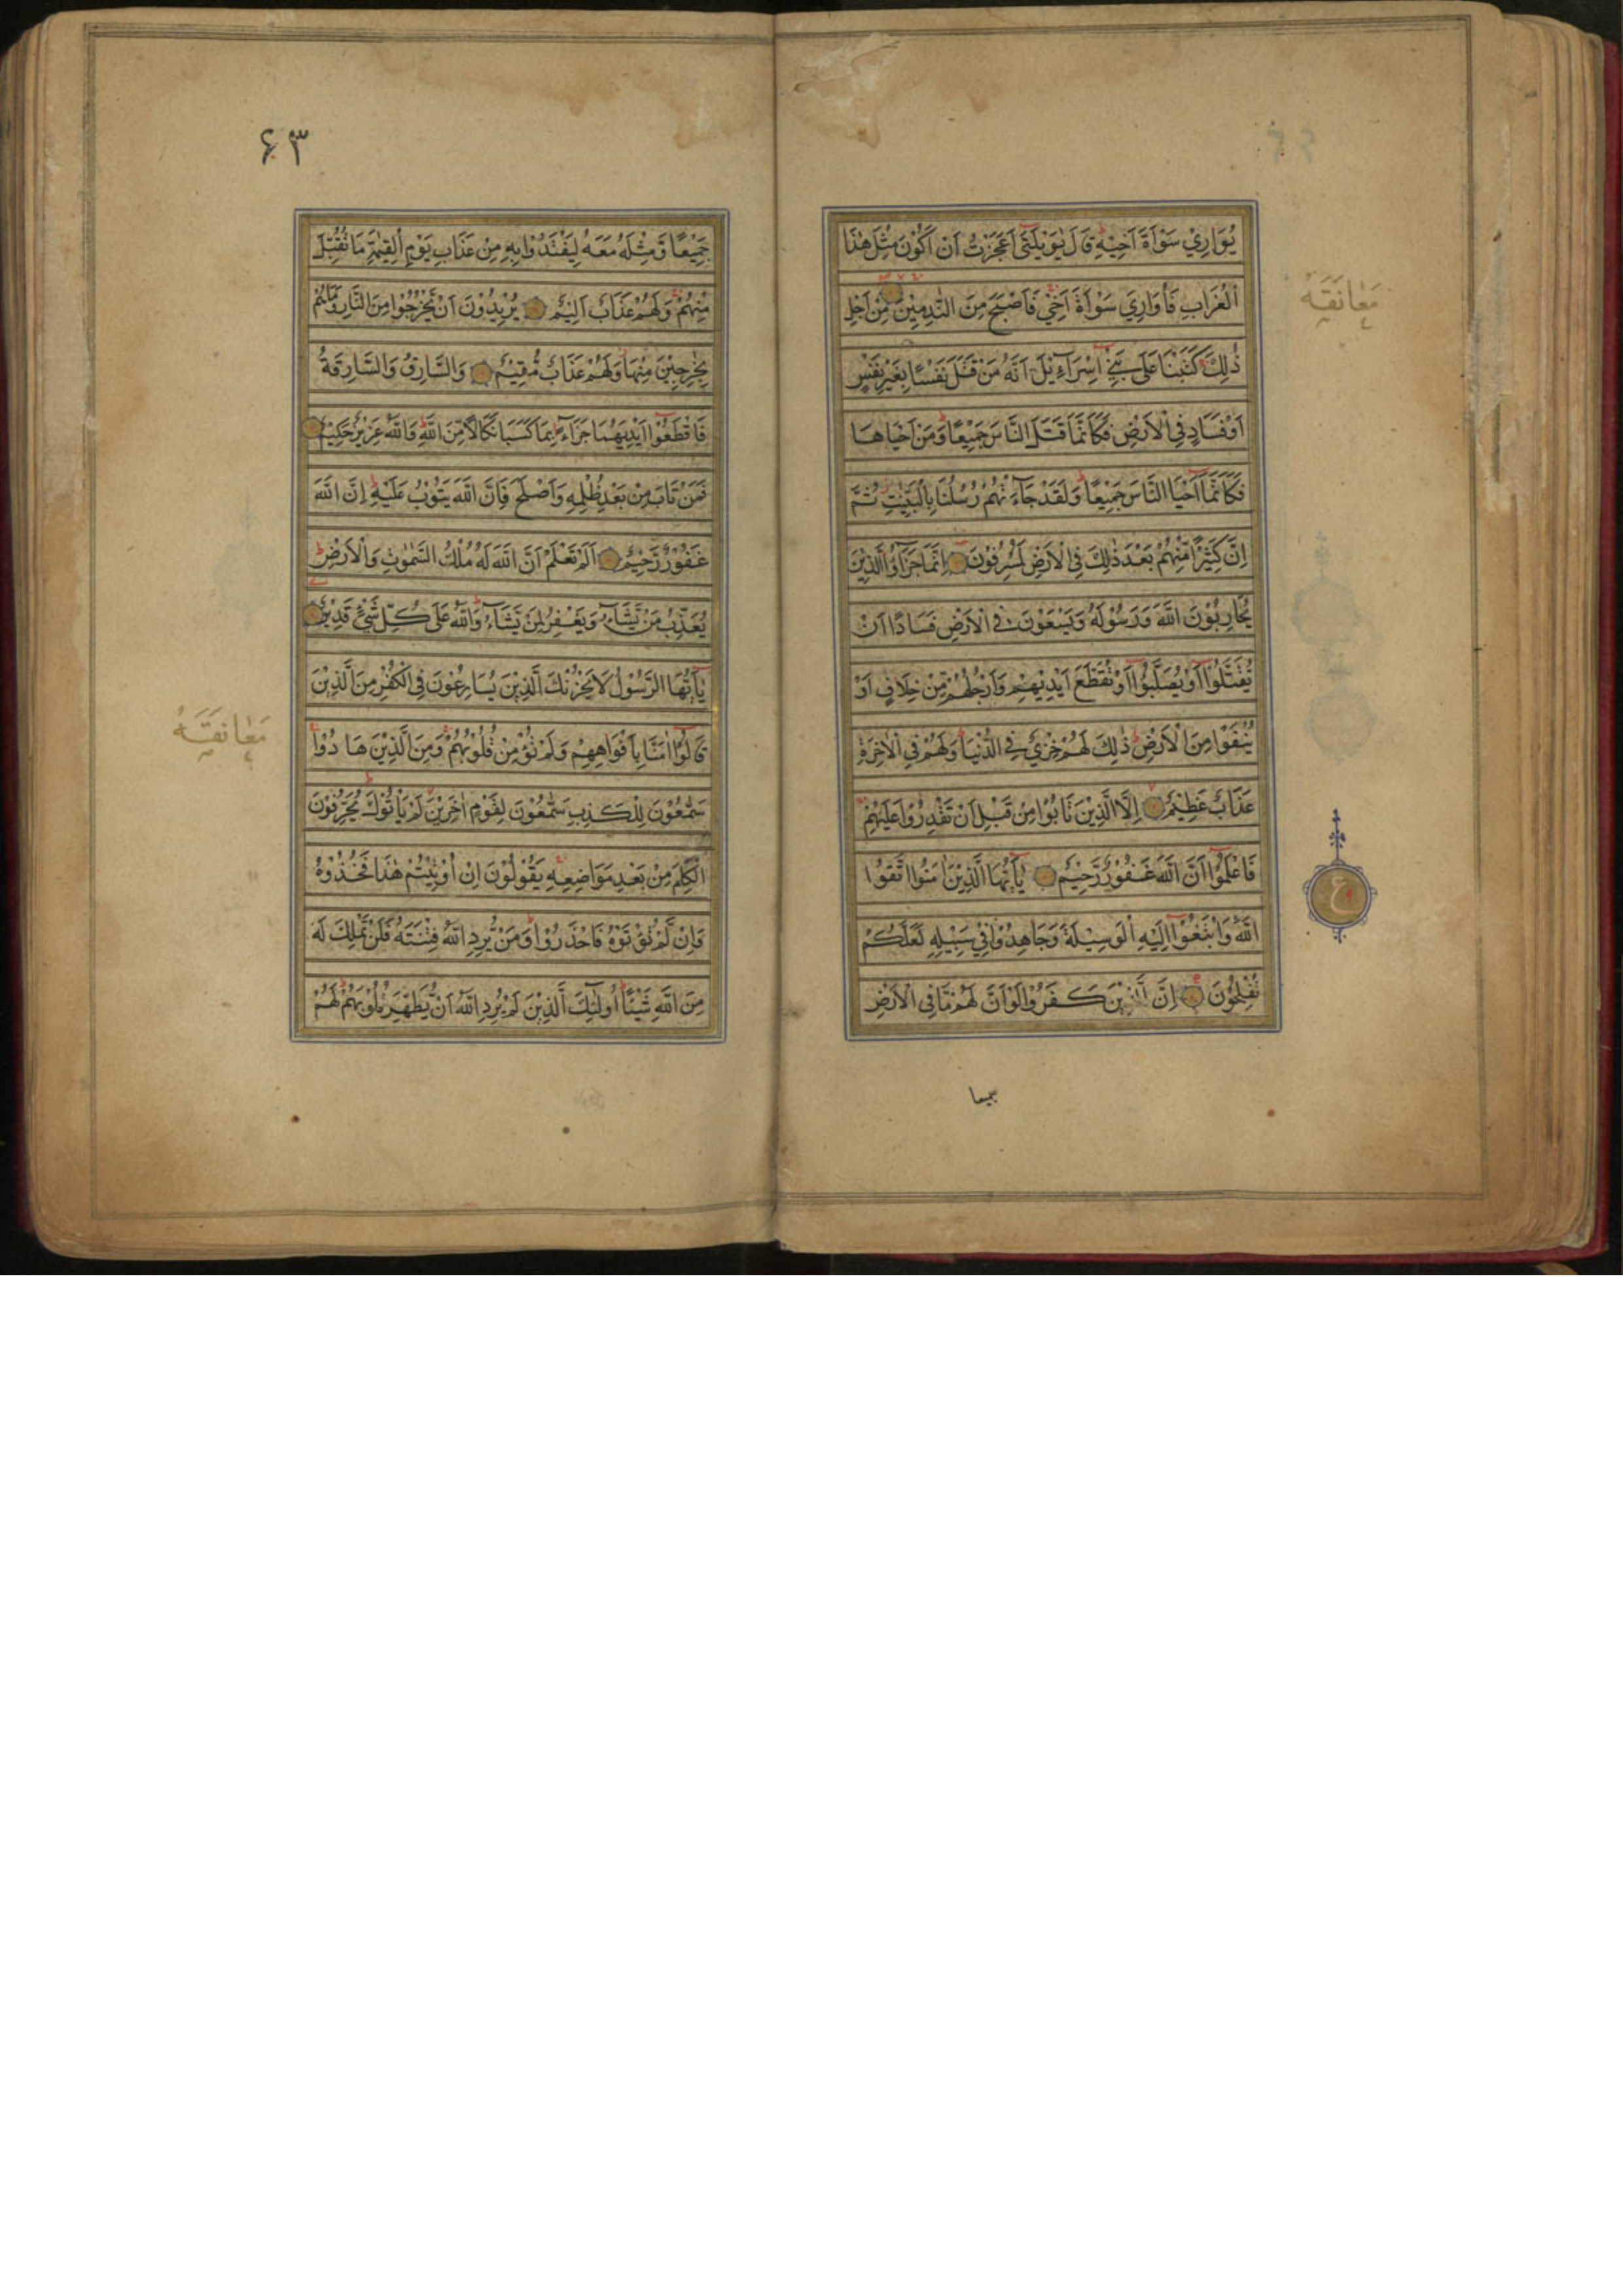 يُوَارِيْ سَوْاَةَ اَخِيْهِ قَالَ يٰوَيْلَتٰٓى اَعَجَزْتُ اَنْ اَكُوْنَ مِثْلَ هٰذَا
الْغُرَابِ فَاُوَارِيَ سَوْاَةَ اَخِيْ فَاَصْبَحَ مِنَ النّٰدِمِيْنَ مِنْ اَجْلِ
مُعَانَقَه
ذٰلِكَ كَتَبْنَا عَلٰى بَنِيْٓ اِسْرَآءِيْلَ اَنَّهُ مَنْ قَتَلَ نَفْسًا بِغَيْرِ نَفْسٍ
اَوْ فَسَادٍ فِي الْاَرْضِ فَكَاَنَّمَا قَتَلَ النَّاسَ جَمِيْعًا وَمَنْ اَحْيَاهَا
فَكَاَنَّمَآ اَحْيَا النَّاسَ جَمِيْعًا وَلَقَدْ جَآءَتْهُمْ رُسُلُنَا بِالْبَيِّنٰتِ ثُمَّ
اِنَّ كَثِيْرًا مِّنْهُمْ بَعْدَ ذٰلِكَ فِي الْاَرْضِ لَمُسْرِفُوْنَ اِنَّمَا جَزٰٓؤُا الَّذِيْنَ
يُحَارِبُوْنَ اللّٰهَ وَرَسُوْلَهُ وَيَسْعَوْنَ فِي الْاَرْضِ فَسَادًا اَنْ
يُّقَتَّلُوْٓا اَوْ يُصَلَّبُوْٓا اَوْ تُقَطَّعَ اَيْدِيْهِمْ وَاَرْجُلُهُمْ مِّنْ خِلَافٍ اَوْ
يُنْفَوْا مِنَ الْاَرْضِ ذٰلِكَ لَهُمْ خِزْيٌ فِي الدُّنْيَا وَلَهُمْ فِي الْاٰخِرَةِ
عَذَابٌ عَظِيْمٌ اِلَّا الَّذِيْنَ تَابُوْا مِنْ قَبْلِ اَنْ تَقْدِرُوْا عَلَيْهِمْ
فَاعْلَمُوْٓا اَنَّ اللّٰهَ غَفُوْرٌ رَّحِيْمٌ يٰٓاَيُّهَا الَّذِيْنَ اٰمَنُوا اتَّقُوا
ع
اللّٰهَ وَابْتَغُوْٓا اِلَيْهِ الْوَسِيْلَةَ وَجَاهِدُوْا فِيْ سَبِيْلِهِ لَعَلَّكُمْ
تُفْلِحُوْنَ اِنَّ الَّذِيْنَ كَفَرُوْا لَوْ اَنَّ لَهُمْ مَّا فِي الْاَرْضِ
جميعا
۶۳
جَمِيْعًا وَّمِثْلَهُ مَعَهُ لِيَفْتَدُوْا بِهِ مِنْ عَذَابِ يَوْمِ الْقِيٰمَةِ مَا تُقُبِّلَ
مِنْهُمْ وَلَهُمْ عَذَابٌ اَلِيْمٌ يُرِيْدُوْنَ اَنْ يَّخْرُجُوْا مِنَ النَّارِ وَمَا هُمْ
بِخٰرِجِيْنَ مِنْهَا وَلَهُمْ عَذَابٌ مُّقِيْمٌ وَالسَّارِقُ وَالسَّارِقَةُ
فَاقْطَعُوْٓا اَيْدِيَهُمَا جَزَآءً بِمَا كَسَبَا نَكَالًا مِّنَ اللّٰهِ وَاللّٰهُ عَزِيْزٌ حَكِيْمٌ
فَمَنْ تَابَ مِنْ بَعْدِ ظُلْمِهِ وَاَصْلَحَ فَاِنَّ اللّٰهَ يَتُوْبُ عَلَيْهِ اِنَّ اللّٰهَ
غَفُوْرٌ رَّحِيْمٌ اَلَمْ تَعْلَمْ اَنَّ اللّٰهَ لَهُ مُلْكُ السَّمٰوٰتِ وَالْاَرْضِ
يُعَذِّبُ مَنْ يَّشَآءُ وَيَغْفِرُ لِمَنْ يَّشَآءُ وَاللّٰهُ عَلٰى كُلِّ شَيْءٍ قَدِيْرٌ
يٰٓاَيُّهَا الرَّسُوْلُ لَا يَحْزُنْكَ الَّذِيْنَ يُسَارِعُوْنَ فِي الْكُفْرِ مِنَ الَّذِيْنَ
قَالُوْٓا اٰمَنَّا بِاَفْوَاهِهِمْ وَلَمْ تُؤْمِنْ قُلُوْبُهُمْ وَمِنَ الَّذِيْنَ هَادُوْا
مُعَانَقَه
سَمّٰعُوْنَ لِلْكَذِبِ سَمّٰعُوْنَ لِقَوْمٍ اٰخَرِيْنَ لَمْ يَاْتُوْكَ يُحَرِّفُوْنَ
الْكَلِمَ مِنْ بَعْدِ مَوَاضِعِهِ يَقُوْلُوْنَ اِنْ اُوْتِيْتُمْ هٰذَا فَخُذُوْهُ
وَاِنْ لَّمْ تُؤْتَوْهُ فَاحْذَرُوْا وَمَنْ يُّرِدِ اللّٰهُ فِتْنَتَهُ فَلَنْ تَمْلِكَ لَهُ
مِنَ اللّٰهِ شَيْئًا اُولٰٓئِكَ الَّذِيْنَ لَمْ يُرِدِ اللّٰهُ اَنْ يُّطَهِّرَ قُلُوْبَهُمْ لَهُمْ